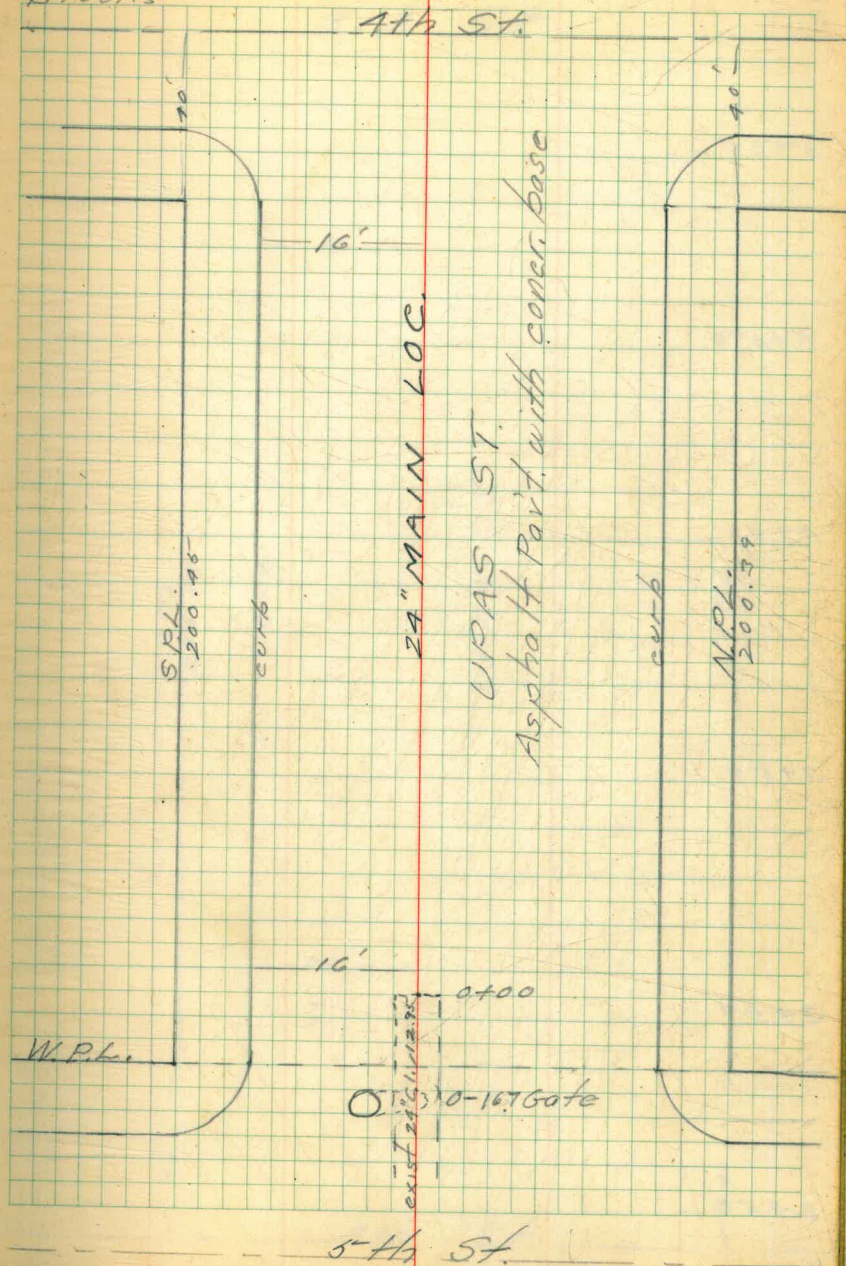 4th St.
40'
40'
16'
24" MAIN LOC.
UPAS ST.
Asphalt Pav't. with concr. base
S.P.L.
200.45
curb
curb
N.P.L.
200.39
16'
0+00
W.P.L.
exist 24" C.I.
0-167 Gate
5th St.